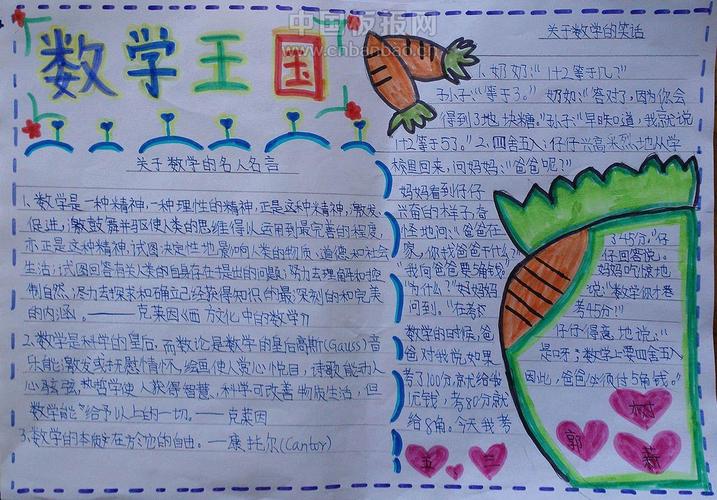 中国板报网
www.cnbanbao.cn
数学王国
关于数学的名人名言
1.数学是一种精神,一种理性的精神,正是这种精神,激发
促进,激鼓舞并驱使人类的思维得以运用到最完善的程度,
亦正是这种精神,试图决定性地影响人类的物质、道德和社会
生活;试图回答有关人类的自身存在提出的问题;努力去理解和控
制自然;尽力去探求和确立已经获得知识的最深刻的和完美
的内涵。——克莱因《西方文化中的数学》
2.数学是科学的皇后,而数论是数学的皇后高斯(Gauss)音
乐能激发或抚慰情怀,绘画使人赏心悦目,诗歌能动人
心弦,哲学使人获得智慧,科学可改善物质生活,但
数学能给予以上的一切。——克莱因
3.数学的本质在于它的自由。——康托尔(Cantor)
关于数学的笑话
1、奶奶:“1+2等于几?”
孙子:“等于3。”奶奶:“答对了,因为你会
得到3块糖。”孙子:“早知道,我就说
1+2等于5了。”2、四舍五入:仔仔兴高采烈地从学
校里回来,问妈妈:“爸爸呢?”
妈妈看到仔仔
兴奋的样子,奇
怪地问:“爸爸在
家,你找爸爸干什么?”
“我向爸爸要5角钱。”
“为什么?”妈妈
问到。“在考
数学的时候,爸
爸对我说,如果
考了100分,就给我
1元钱,考80分就
给8角。今天我考
了45分。”仔
仔回答说。
妈妈吃惊地
说:“数学你才
考45分!”
仔仔得意地说:
是呀;数学上要四舍五入
因此,爸爸必须付5角钱。”
五 三
郭